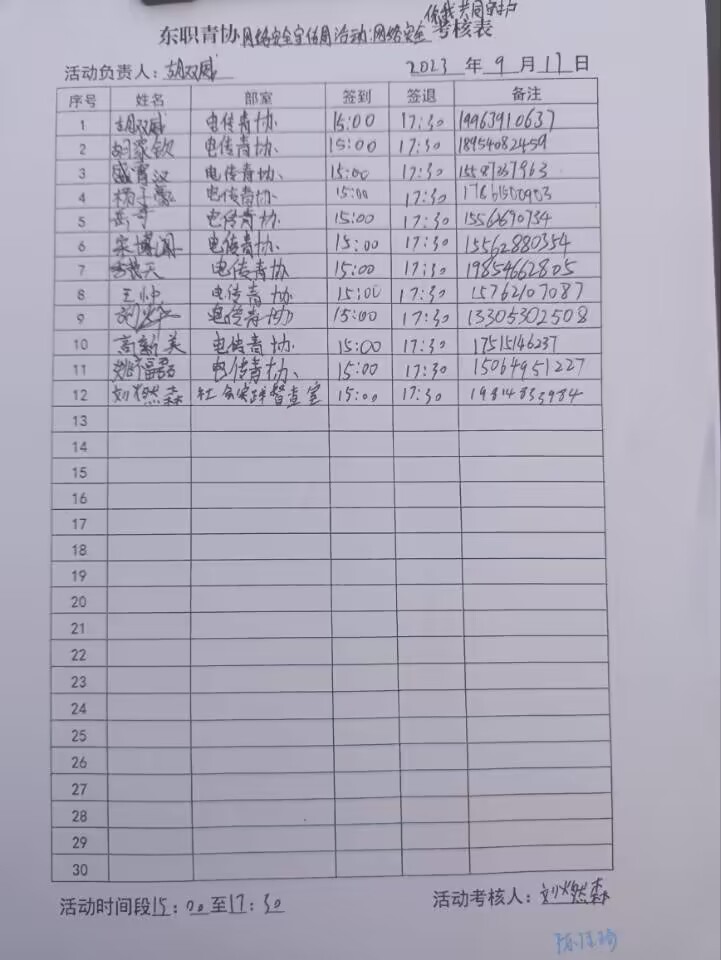 你我共同守护
东职青协网络安全宣传周活动:网络安全考核表
活动负责人: 胡双威 2023 年 9 月 17 日
序号 姓名 部室 签到 签退 备注
1 胡双威 电传青协 15:00 17:30 19963910637
2 胡家钦 电传青协 15:00 17:30 18954082459
3 盛宵汉 电传青协 15:00 17:30
4 杨子豪 电传青协 15:00 17:30
5 岳哥 电传青协 15:00 17:30
6 宋博闻 电传青协 15:00 17:30 15562880354
7 电传青协 15:00 17:30 19854662805
8 王帅 电传青协 15:00 17:30 15762107087
9 电传青协 15:00 17:30 13305302508
10 高新美 电传青协 15:00 17:30 17515146237
11 电传青协 15:00 17:30 15064951227
12 刘燃森 社会实践督查室 15:00 17:30
13
14
15
16
17
18
19
20
21
22
23
24
25
26
27
28
29
30
活动时间段15:00至17:30 活动考核人: 刘燃森